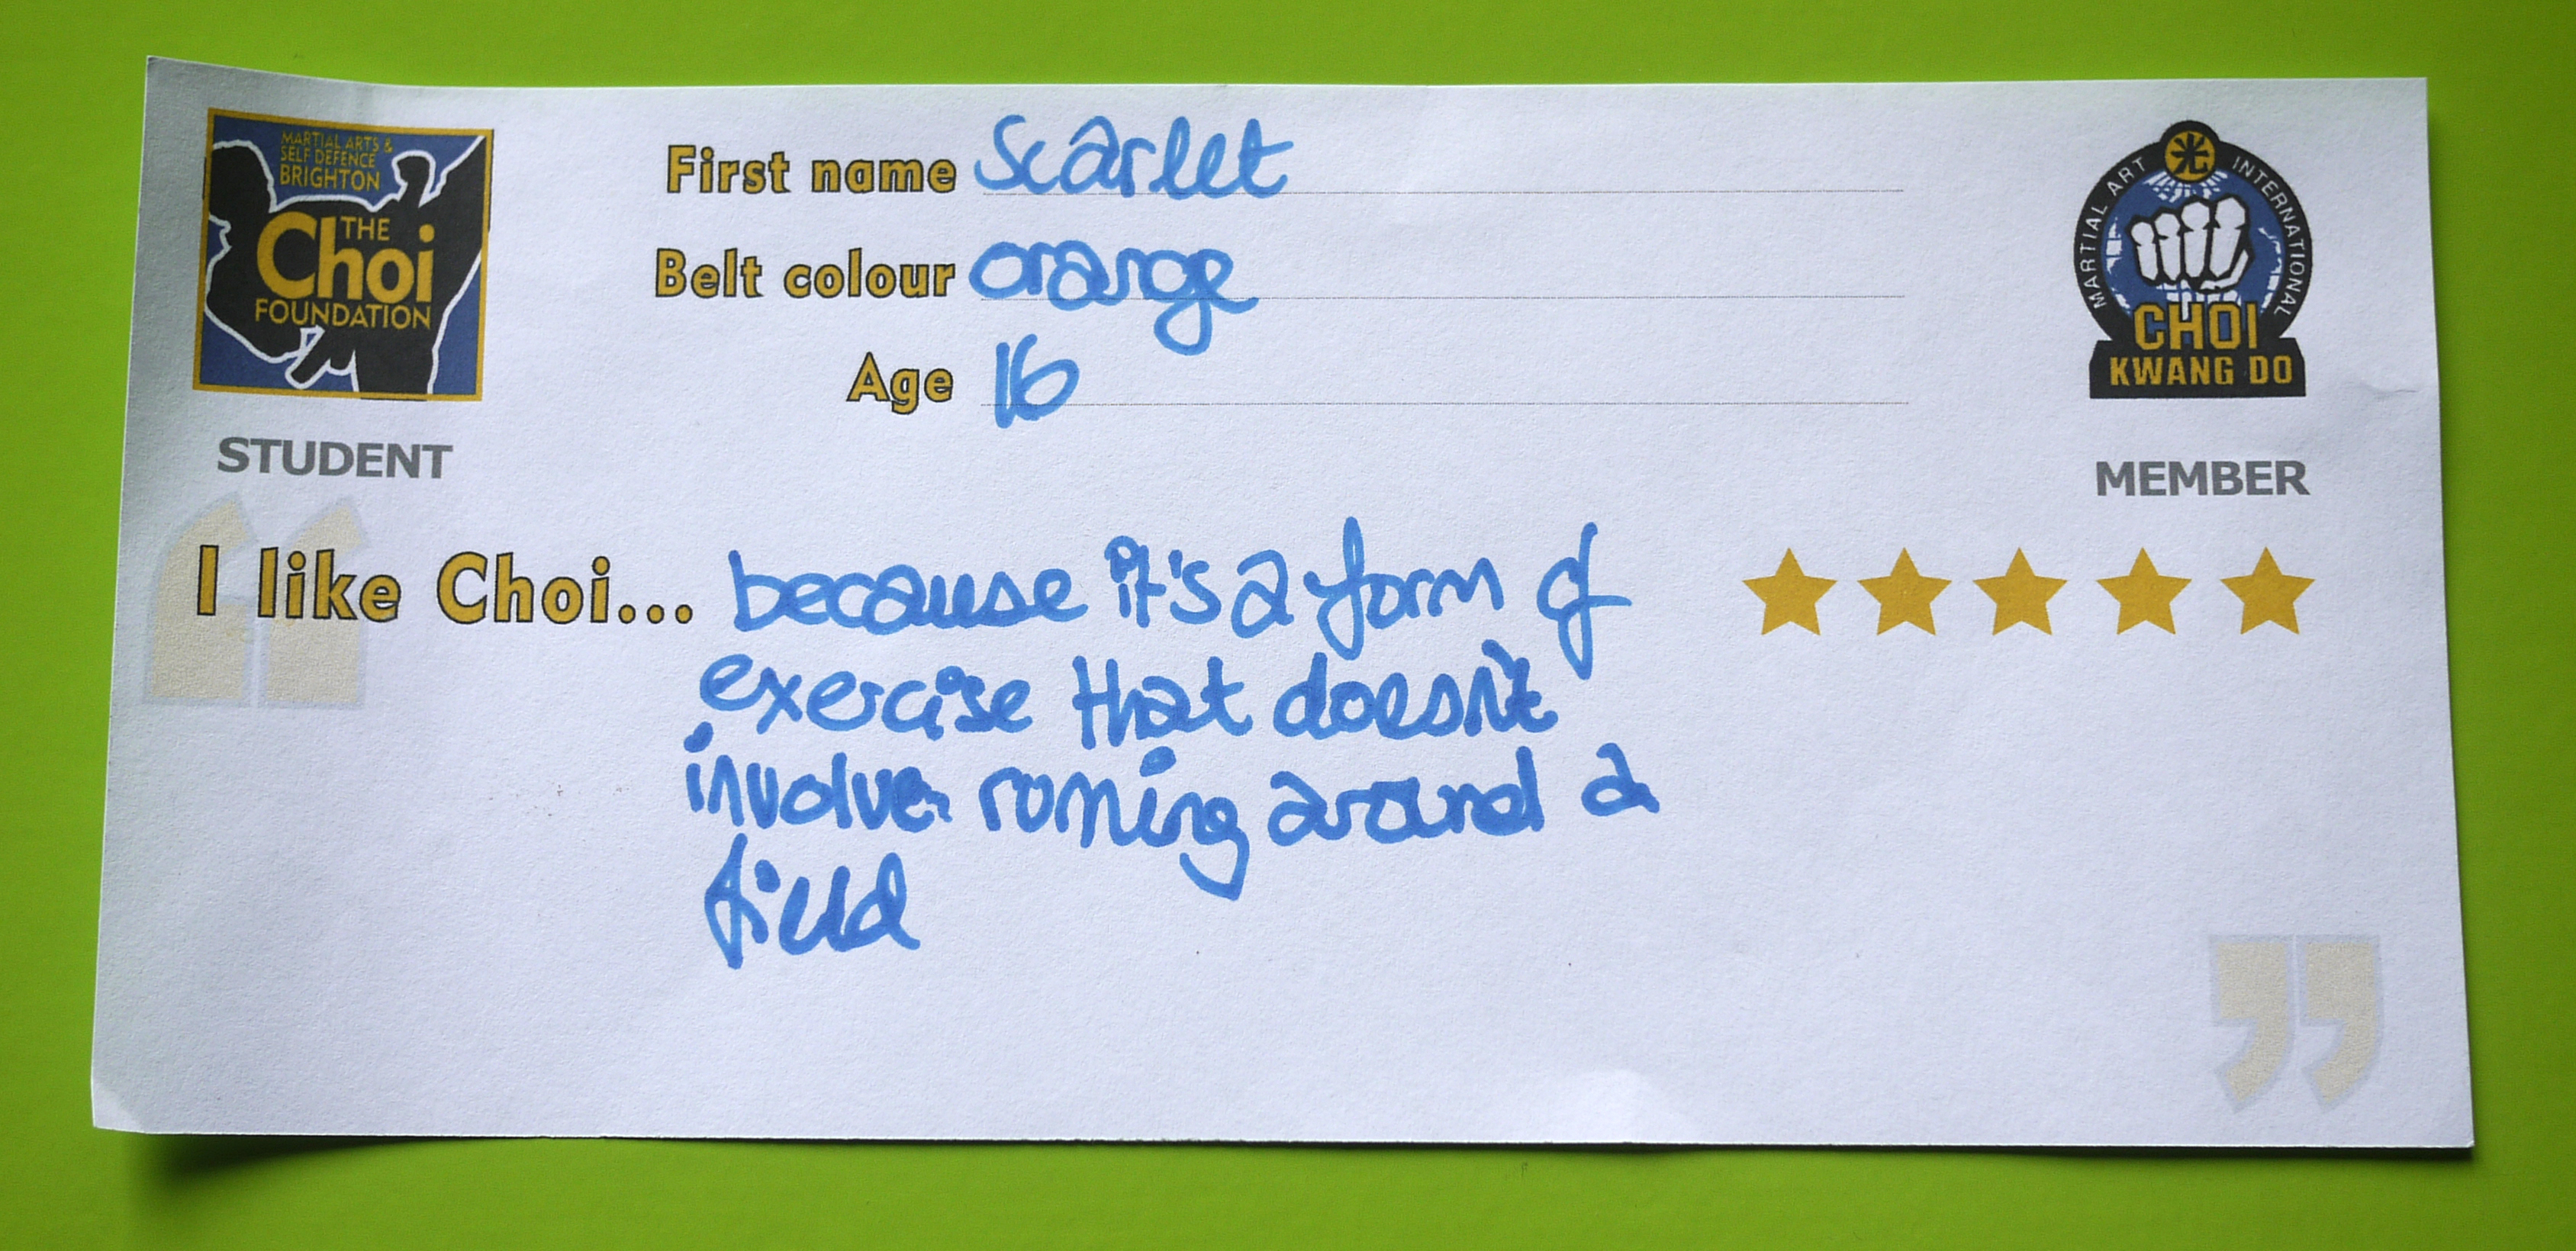 MARTIAL ARTS &
SELF DEFENCE
BRIGHTON
THE
Choi
FOUNDATION
STUDENT
First name Scarlet
Belt colour orange
Age 16
MARTIAL ART INTERNATIONAL
CHOI
KWANG DO
MEMBER
I like Choi... because it's a form of
exercise that doesn't
involve roming around a
field